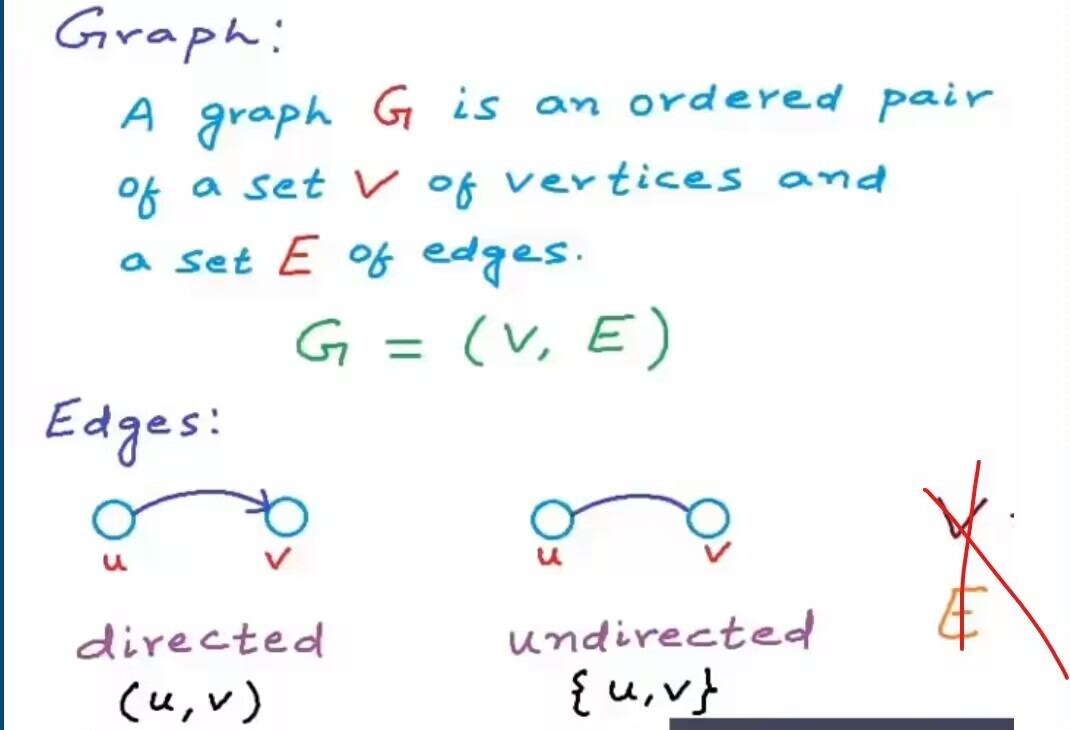 Graph:
A graph G is an ordered pair
of a set V of vertices and
a set E of edges.
G = (V, E)
Edges:
u v u v V
E
directed undirected
(u, v) {u, v}